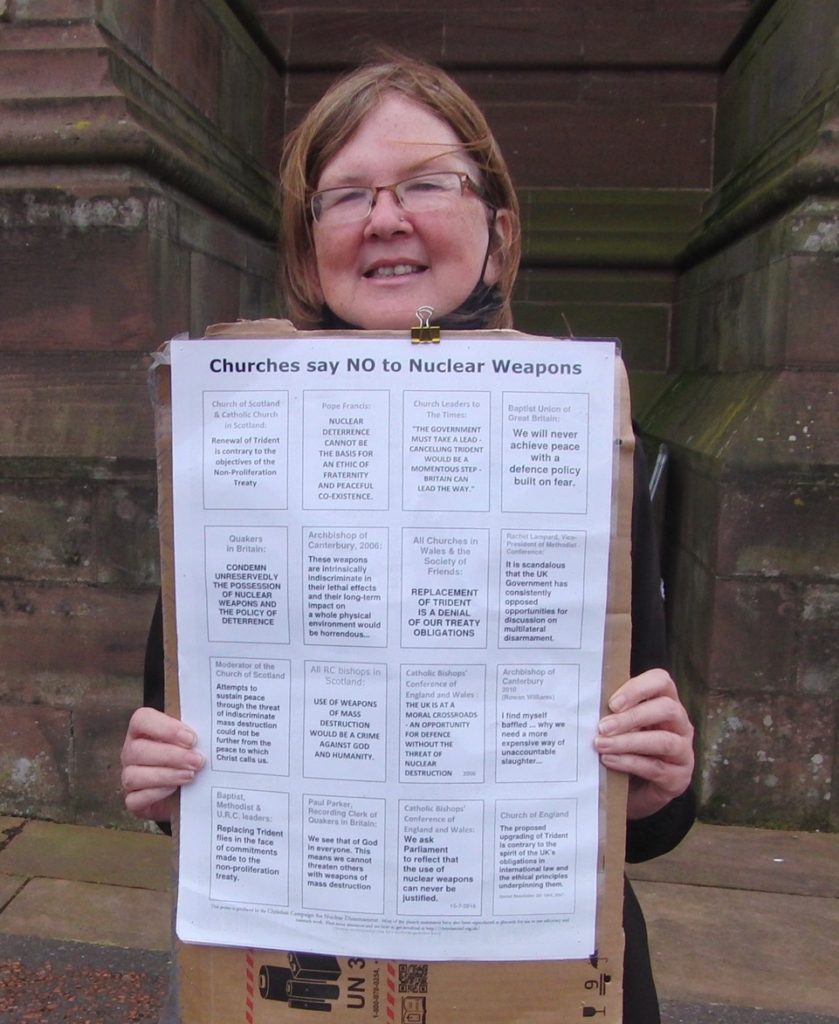 Churches say NO to Nuclear Weapons
Church of Scotland
& Catholic Church
in Scotland:
Renewal of Trident
is contrary to the
objectives of the
Non-Proliferation
Treaty
Pope Francis:
NUCLEAR
DETERRENCE
CANNOT BE
THE BASIS FOR
AN ETHIC OF
FRATERNITY
AND PEACEFUL
CO-EXISTENCE.
Church Leaders to
The Times:
"THE GOVERNMENT
MUST TAKE A LEAD -
CANCELLING TRIDENT
WOULD BE A
MOMENTOUS STEP -
BRITAIN CAN
LEAD THE WAY."
Baptist Union of
Great Britain:
We will never
achieve peace
with a
defence policy
built on fear.
Quakers
in Britain:
CONDEMN
UNRESERVEDLY
THE POSSESSION
OF NUCLEAR
WEAPONS AND
THE POLICY OF
DETERRENCE
Archbishop of
Canterbury, 2006:
These weapons
are intrinsically
indiscriminate in
their lethal effects
and their long-term
impact on
a whole physical
environment would
be horrendous...
All Churches in
Wales & the
Society of
Friends:
REPLACEMENT
OF TRIDENT
IS A DENIAL
OF OUR TREATY
OBLIGATIONS
Rachel Lampard, Vice-
President of Methodist
Conference:
It is scandalous
that the UK
Government has
consistently
opposed
opportunities for
discussion on
multilateral
disarmament.
Moderator of the
Church of Scotland
Attempts to
sustain peace
through the threat
of indiscriminate
mass destruction
could not be
further from the
peace to which
Christ calls us.
All RC bishops in
Scotland:
USE OF WEAPONS
OF MASS
DESTRUCTION
WOULD BE A CRIME
AGAINST GOD
AND HUMANITY.
Catholic Bishops'
Conference of
England and Wales :
THE UK IS AT A
MORAL CROSSROADS
- AN OPPORTUNITY
FOR DEFENCE
WITHOUT THE
THREAT OF
NUCLEAR
DESTRUCTION 2006
Archbishop of
Canterbury
2010
(Rowan Williams)
I find myself
baffled ... why we
need a more
expensive way of
unaccountable
slaughter...
Baptist,
Methodist &
U.R.C. leaders:
Replacing Trident
flies in the face
of commitments
made to the
non-proliferation
treaty.
Paul Parker,
Recording Clerk of
Quakers in Britain:
We see that of God
in everyone. This
means we cannot
threaten others
with weapons of
mass destruction
Catholic Bishops'
Conference of
England and Wales:
We ask
Parliament
to reflect that
the use of
nuclear weapons
can never be
justified.
Church of England
The proposed
upgrading of Trident
is contrary to the
spirit of the UK's
obligations in
international law and
the ethical principles
underpinning them.
This poster is produced by the Christian Campaign for Nuclear Disarmament.
UN 3
9